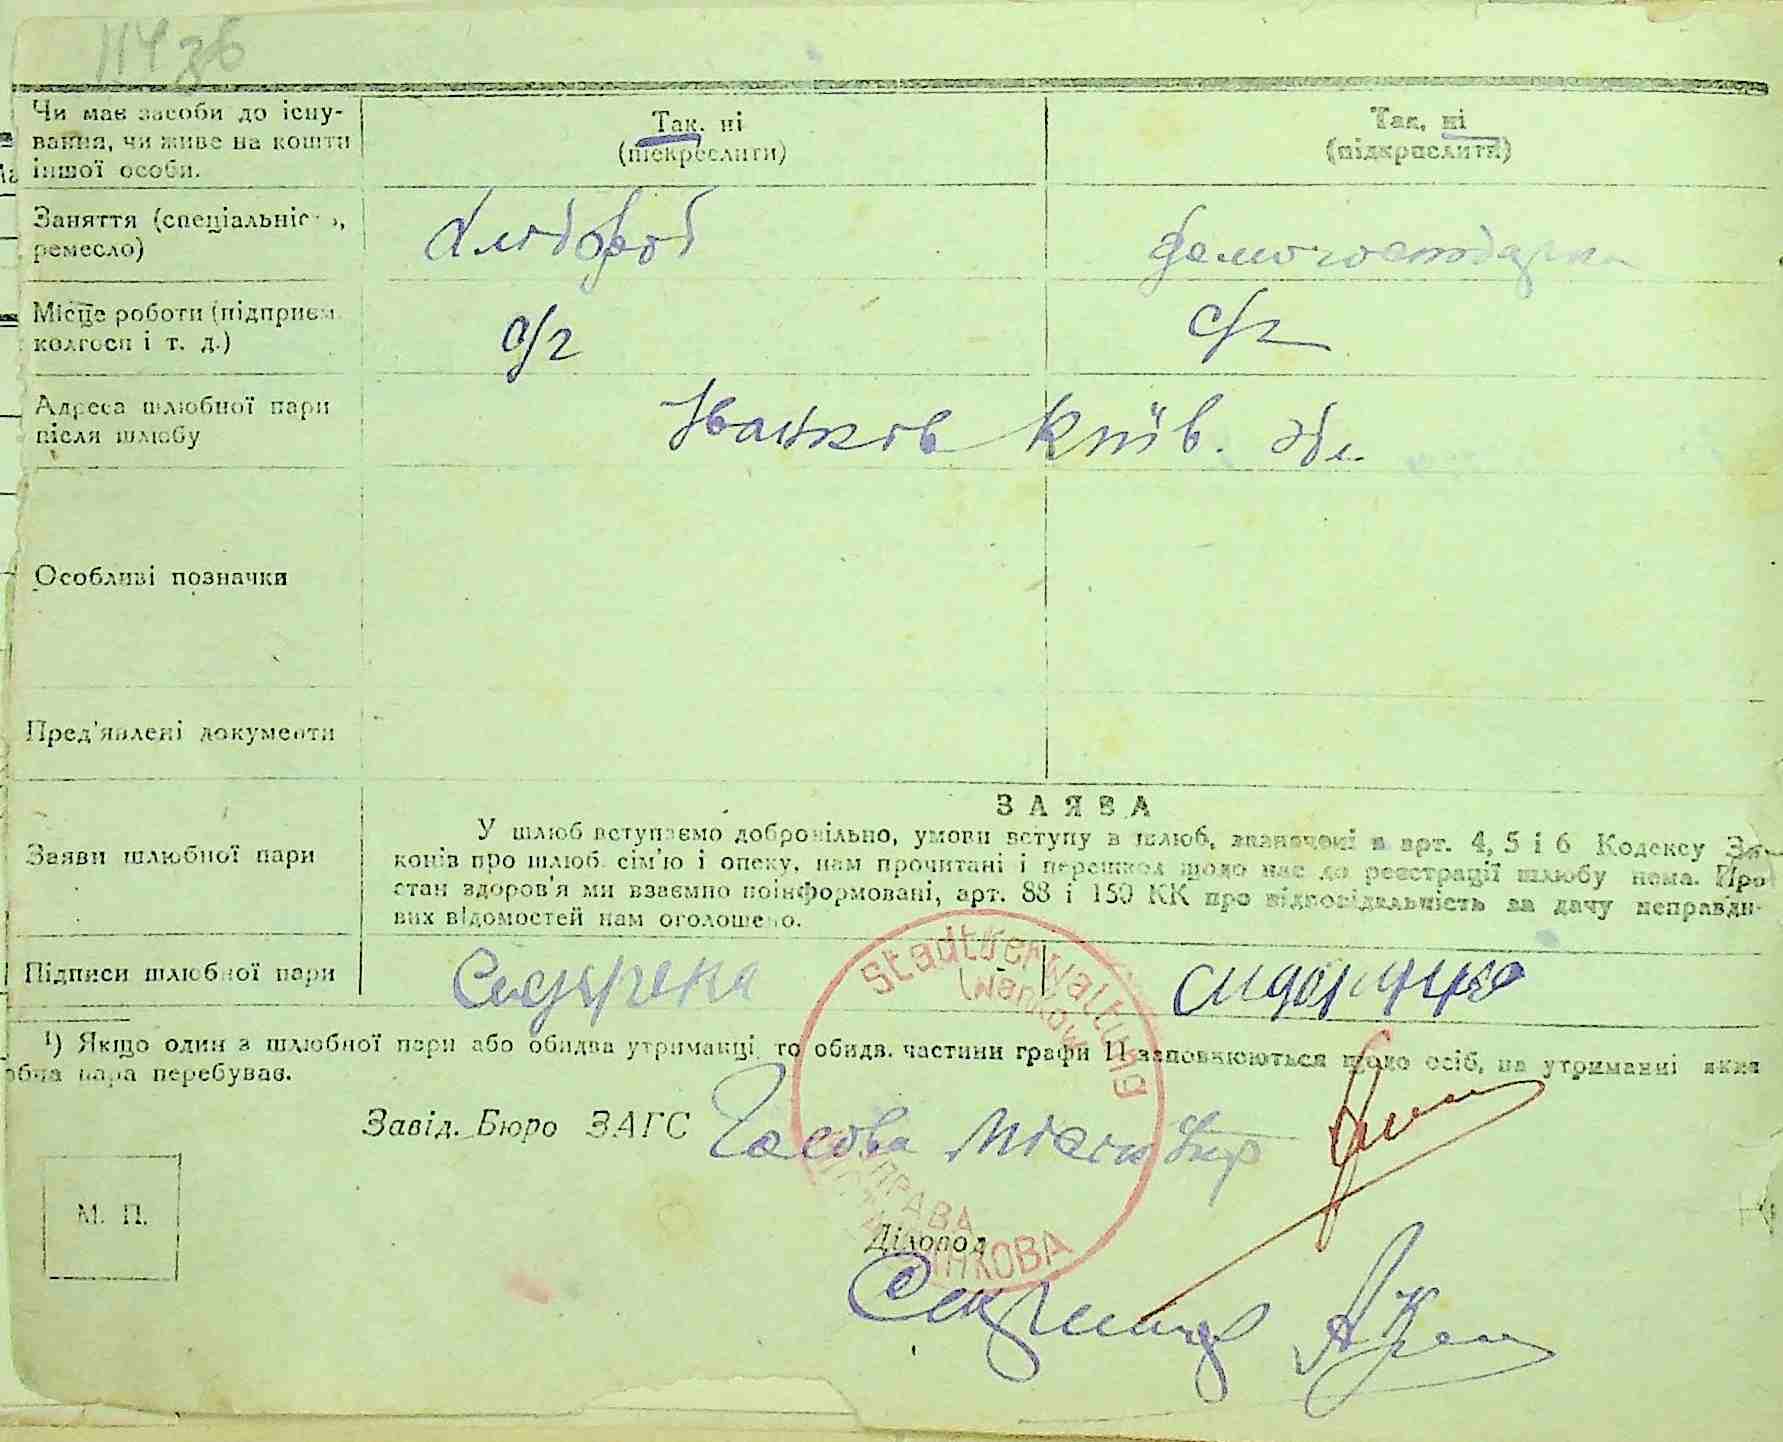 114 зв
Чи має засоби до існу-
вання, чи живе на кошти
іншої особи.
Так, ні
(підкреслити)
Так, ні
(підкреслити)
Заняття (спеціальність,
ремесло)
Хлібороб
Домогосподарка
Місце роботи (підприєм.
колгосп і т. д.)
с/г
с/г
Адреса шлюбної пари
після шлюбу
Іванків Київ. обл.
Особливі позначки
Пред'явлені документи
Заяви шлюбної пари
ЗАЯВА
У шлюб вступаємо добровільно, умови вступу в шлюб, зазначені в арт. 4, 5 і 6 Кодексу За-
конів про шлюб, сім'ю і опеку, нам прочитані і перешкод щодо нас до реєстрації шлюбу нема. Про
стан здоров'я ми взаємно поінформовані, арт. 88 і 150 КК про відповідальність за дачу неправди-
вих відомостей нам оголошено.
Підписи шлюбної пари
Stadtverwaltung
Iwankow
¹) Якщо один з шлюбної пари або обидва утриманці, то обидв. частини графи 11 заповнюються щодо осіб, на утриманні яких
обна пара перебуває.
Завід. Бюро ЗАГС
Голова
УПРАВА
ІВАНКОВА
М. П.
Діловод
Секретар